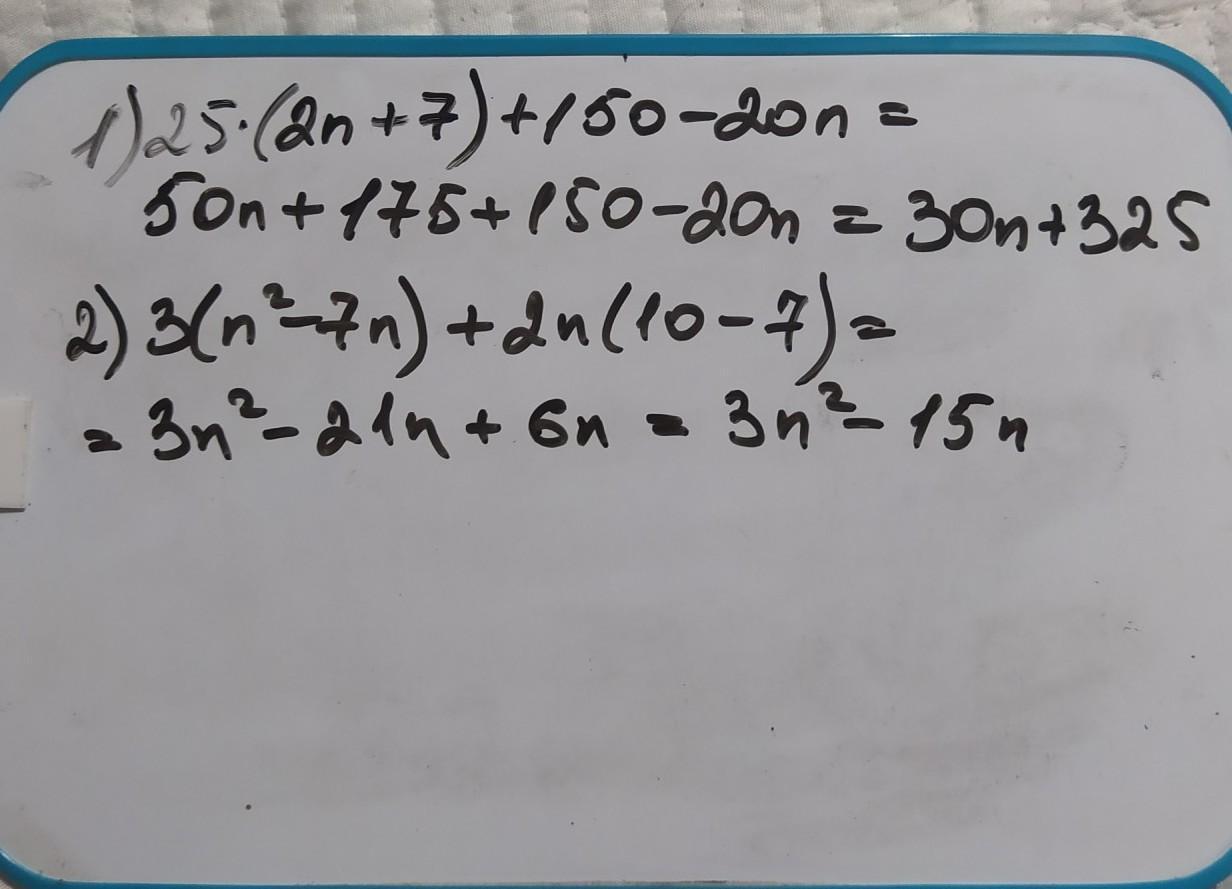 1) 25·(2n+7)+150-20n=
50n+175+150-20n=30n+325
2) 3(n²-7n)+2n(10-7)=
=3n²-21n+6n=3n²-15n